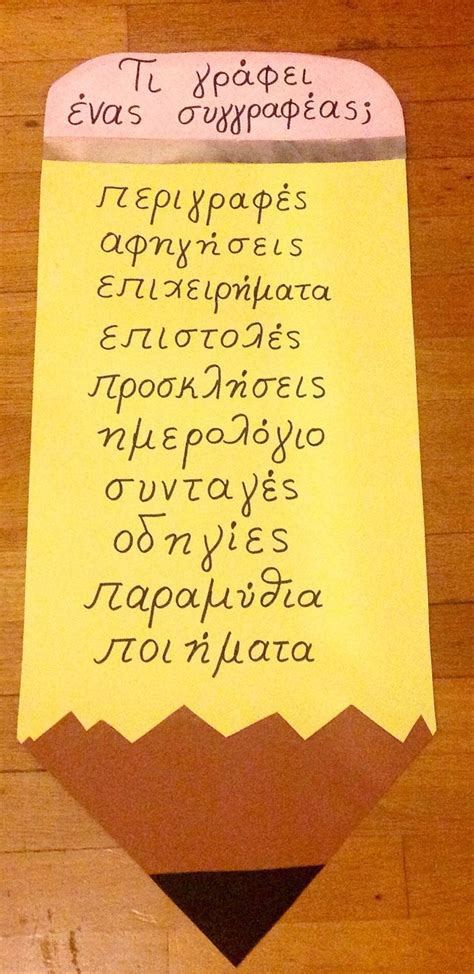 Τι γράφει
ένας συγγραφέας;
περιγραφές
αφηγήσεις
επιχειρήματα
επιστολές
προσκλήσεις
ημερολόγιο
συνταγές
οδηγίες
παραμύθια
ποιήματα